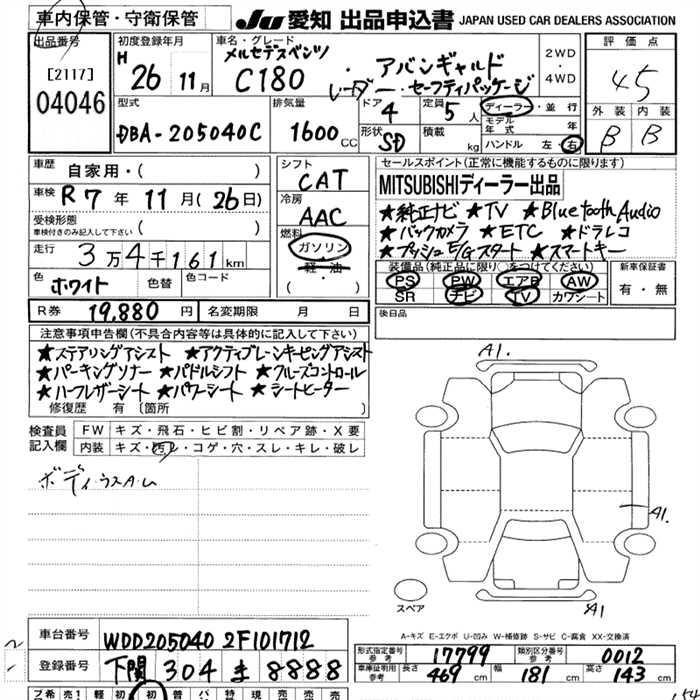 車内保管・守衛保管
JU 愛知 出品申込書 JAPAN USED CAR DEALERS ASSOCIATION
出品番号
[2117]
04046
初度登録年月
H 26 年 11月
車名・グレード
メルセデスベンツ
C180
・アバンギャルド
レーダーセーフティパッケージ
2WD
・
4WD
評価点
4.5
外装 内装
B B
型式
DBA-205040C
排気量
1600 CC
ドア
4
定員
5 人
形状
SD
積載
kg
ディーラー・並行
モデル年式 年
ハンドル 左・右
車歴
自家用・( )
車検
R7年11月(26日)
受検形態
車検付きのみ記入して下さい ( )
走行
3万4千161km
色
ホワイト
色替
色コード
シフト
CAT
冷房
AAC
燃料
ガソリン
・
軽・油
セールスポイント(正常に機能するものに限ります)
MITSUBISHIディーラー出品
★純正ナビ ★TV ★Bluetooth Audio
★バックカメラ ★ETC ★ドラレコ
★プッシュE/Gスタート ★スマートキー
装備品(純正品に限り○をつけてください)
PS PW エアB AW
SR ナビ TV カワシート
新車保証書
有・無
R券 19,880 円
名変期限 月 日
後日品
注意事項申告欄(不具合内容等は具体的に記入して下さい)
★ステアリングアシスト ★アクティブレーンキーピングアシスト
★パーキングソナー ★パドルシフト ★クルーズコントロール
★ハーフレザーシート ★パワーシート ★シートヒーター
修復歴 有 〔箇所 〕
検査員
記入欄
FW キズ・飛石・ヒビ割・リペア跡・X要
内装 キズ・汚レ・コゲ・穴・スレ・キレ・破レ
ボディ・ウスA.U
A1.
A1.
A1
スペア
A-キズ E-エクボ U-凹み W-補修跡 S-サビ C-腐食 XX-交換済
車台番号 WDD205040 2F101712
登録番号 下関 304 ま 8888
形式指定番号 参考 17799
類別区分番号 参考 0012
車庫証明用 参考 長さ 469 cm 幅 181 cm 高さ 143 cm